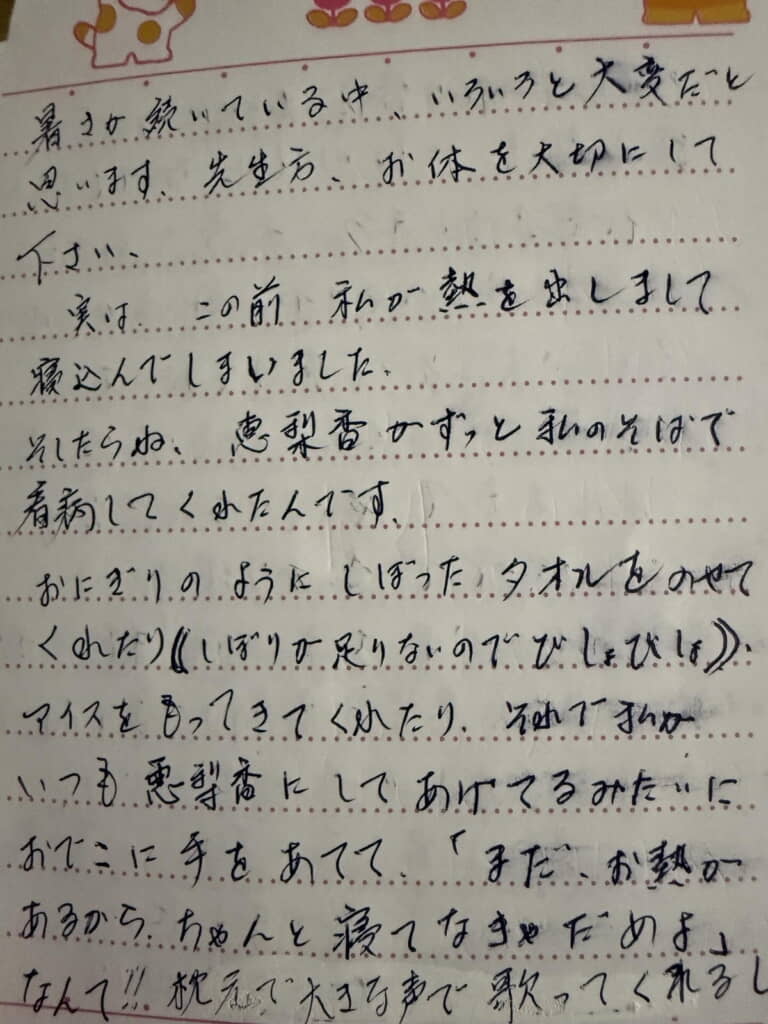 暑さが続いている中、いろいろと大変だと
思います。先生方、お体を大切にして
下さい。
実は、この前、私が熱を出しまして
寝込んでしまいました。
そしたらね、恵梨香がずっと私のそばで
看病してくれたんです。
おにぎりのようにしぼったタオルをのせて
くれたり((しぼりが足りないのでびしょびしょ))、
アイスをもってきてくれたり、それで私が
いつも恵梨香にしてあげてるみたいに
おでこに手をあてて、「まだ、お熱が
あるから、ちゃんと寝てなきゃだめよ」
なんて!!枕元で大きな声で歌ってくれるし